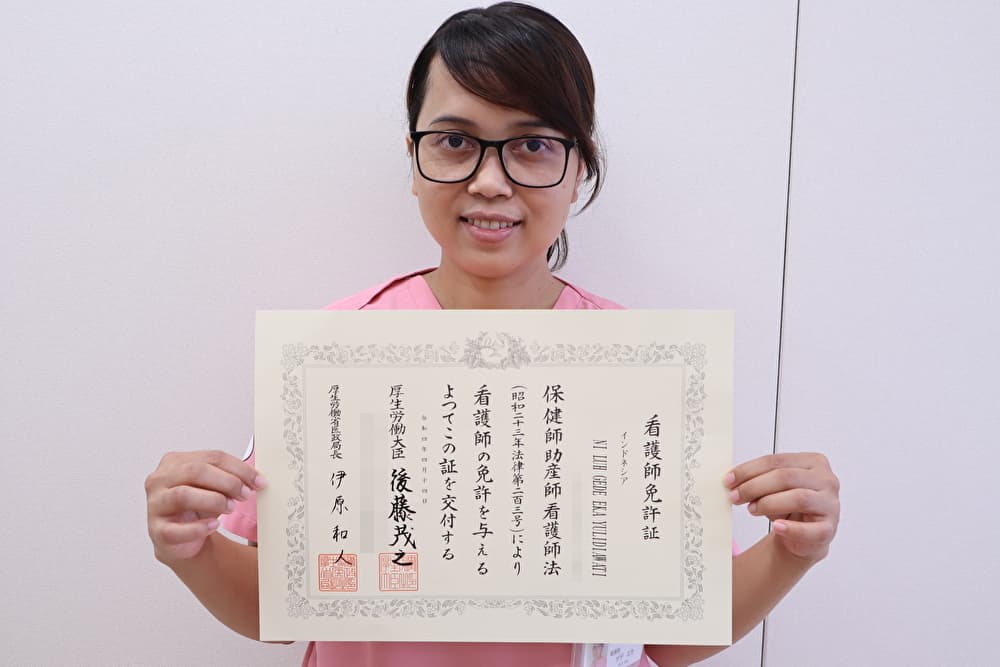 看護師免許証
インドネシア
NI LUH GEDE EKA YULIDILAWATI
保健師助産師看護師法
(昭和二十三年法律第二百三号)により
看護師の免許を与える
よつてこの証を交付する
令和四年四月十四日
厚生労働大臣 後藤茂之
厚生労働省医政局長 伊原和人